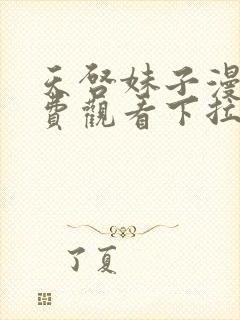 天啓妹子漫
費觀看下拉
了夏